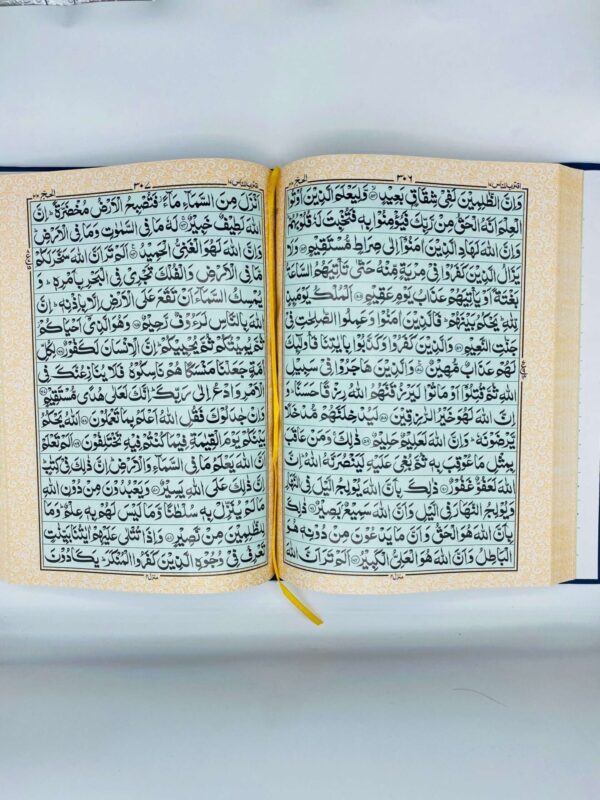 اقترب للناس ١٧
٣٠٦
الحج ٢٢
وَاِنَّ الظّٰلِمِيْنَ لَفِيْ شِقَاقٍۭ بَعِيْدٍ ۙ﴿۵۳﴾ وَّلِيَعْلَمَ الَّذِيْنَ اُوْتُوا
الْعِلْمَ اَنَّهُ الْحَقُّ مِنْ رَّبِّكَ فَيُؤْمِنُوْا بِهٖ فَتُخْبِتَ لَهٗ قُلُوْبُهُمْ ؕ
وَاِنَّ اللّٰهَ لَهَادِ الَّذِيْنَ اٰمَنُوْۤا اِلٰى صِرَاطٍ مُّسْتَقِيْمٍ ﴿۵۴﴾ وَلَا
يَزَالُ الَّذِيْنَ كَفَرُوْا فِيْ مِرْيَةٍ مِّنْهُ حَتّٰى تَاْتِيَهُمُ السَّاعَةُ
بَغْتَةً اَوْ يَاْتِيَهُمْ عَذَابُ يَوْمٍ عَقِيْمٍ ﴿۵۵﴾ اَلْمُلْكُ يَوْمَئِذٍ
لِّلّٰهِ ؕ يَحْكُمُ بَيْنَهُمْ ؕ فَالَّذِيْنَ اٰمَنُوْا وَعَمِلُوا الصّٰلِحٰتِ فِيْ
جَنّٰتِ النَّعِيْمِ ﴿۵۶﴾ وَالَّذِيْنَ كَفَرُوْا وَكَذَّبُوْا بِاٰيٰتِنَا فَاُولٰٓئِكَ
لَهُمْ عَذَابٌ مُّهِيْنٌ ﴿۵۷﴾ وَالَّذِيْنَ هَاجَرُوْا فِيْ سَبِيْلِ
اللّٰهِ ثُمَّ قُتِلُوْۤا اَوْ مَاتُوْا لَيَرْزُقَنَّهُمُ اللّٰهُ رِزْقًا حَسَنًا ؕ وَ
اِنَّ اللّٰهَ لَهُوَ خَيْرُ الرّٰزِقِيْنَ ﴿۵۸﴾ لَيُدْخِلَنَّهُمْ مُّدْخَلًا
يَّرْضَوْنَهٗ ؕ وَاِنَّ اللّٰهَ لَعَلِيْمٌ حَلِيْمٌ ﴿۵۹﴾ ذٰلِكَ ۚ وَمَنْ عَاقَبَ
بِمِثْلِ مَا عُوْقِبَ بِهٖ ثُمَّ بُغِيَ عَلَيْهِ لَيَنْصُرَنَّهُ اللّٰهُ ؕ اِنَّ
اللّٰهَ لَعَفُوٌّ غَفُوْرٌ ﴿۶۰﴾ ذٰلِكَ بِاَنَّ اللّٰهَ يُوْلِجُ الَّيْلَ فِي النَّهَارِ
وَيُوْلِجُ النَّهَارَ فِي الَّيْلِ وَاَنَّ اللّٰهَ سَمِيْعٌۢ بَصِيْرٌ ﴿۶۱﴾ ذٰلِكَ
بِاَنَّ اللّٰهَ هُوَ الْحَقُّ وَاَنَّ مَا يَدْعُوْنَ مِنْ دُوْنِهٖ هُوَ
الْبَاطِلُ وَاَنَّ اللّٰهَ هُوَ الْعَلِيُّ الْكَبِيْرُ ﴿۶۲﴾ اَلَمْ تَرَ اَنَّ اللّٰهَ
منزل ٤
اقترب للناس ١٧
٣٠٧
الحج ٢٢
اَنْزَلَ مِنَ السَّمَآءِ مَآءً ۫ فَتُصْبِحُ الْاَرْضُ مُخْضَرَّةً ؕ اِنَّ
اللّٰهَ لَطِيْفٌ خَبِيْرٌ ﴿۶۳﴾ لَهٗ مَا فِي السَّمٰوٰتِ وَمَا فِي الْاَرْضِ ؕ
وَاِنَّ اللّٰهَ لَهُوَ الْغَنِيُّ الْحَمِيْدُ ﴿۶۴﴾ اَلَمْ تَرَ اَنَّ اللّٰهَ سَخَّرَ لَكُمْ
مَّا فِي الْاَرْضِ وَالْفُلْكَ تَجْرِيْ فِي الْبَحْرِ بِاَمْرِهٖ ؕ وَ
يُمْسِكُ السَّمَآءَ اَنْ تَقَعَ عَلَى الْاَرْضِ اِلَّا بِاِذْنِهٖ ؕ اِنَّ
اللّٰهَ بِالنَّاسِ لَرَءُوْفٌ رَّحِيْمٌ ﴿۶۵﴾ وَهُوَ الَّذِيْۤ اَحْيَاكُمْ ۫
ثُمَّ يُمِيْتُكُمْ ثُمَّ يُحْيِيْكُمْ ؕ اِنَّ الْاِنْسَانَ لَكَفُوْرٌ ﴿۶۶﴾ لِكُلِّ
اُمَّةٍ جَعَلْنَا مَنْسَكًا هُمْ نَاسِكُوْهُ فَلَا يُنَازِعُنَّكَ فِي
الْاَمْرِ وَادْعُ اِلٰى رَبِّكَ ؕ اِنَّكَ لَعَلٰى هُدًى مُّسْتَقِيْمٍ ﴿۶۷﴾
وَاِنْ جٰدَلُوْكَ فَقُلِ اللّٰهُ اَعْلَمُ بِمَا تَعْمَلُوْنَ ﴿۶۸﴾ اَللّٰهُ يَحْكُمُ
بَيْنَكُمْ يَوْمَ الْقِيٰمَةِ فِيْمَا كُنْتُمْ فِيْهِ تَخْتَلِفُوْنَ ﴿۶۹﴾ اَلَمْ تَعْلَمْ
اَنَّ اللّٰهَ يَعْلَمُ مَا فِي السَّمَآءِ وَالْاَرْضِ ؕ اِنَّ ذٰلِكَ فِيْ كِتٰبٍ ؕ
اِنَّ ذٰلِكَ عَلَى اللّٰهِ يَسِيْرٌ ﴿۷۰﴾ وَيَعْبُدُوْنَ مِنْ دُوْنِ اللّٰهِ
مَا لَمْ يُنَزِّلْ بِهٖ سُلْطٰنًا وَّمَا لَيْسَ لَهُمْ بِهٖ عِلْمٌ ؕ وَمَا
لِلظّٰلِمِيْنَ مِنْ نَّصِيْرٍ ﴿۷۱﴾ وَاِذَا تُتْلٰى عَلَيْهِمْ اٰيٰتُنَا بَيِّنٰتٍ
تَعْرِفُ فِيْ وُجُوْهِ الَّذِيْنَ كَفَرُوا الْمُنْكَرَ ؕ يَكَادُوْنَ
منزل ٤